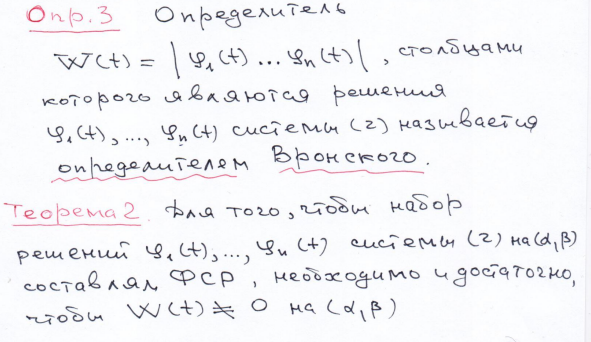 Опр.3 Определитель
W(t) = | φ₁(t) ... φₙ(t) |, столбцами
которого являются решения
φ₁(t), ..., φₙ(t) системы (2) называется
определителем Вронского.
Теорема 2. Для того, чтобы набор
решений φ₁(t), ..., φₙ(t) системы (2) на (α, β)
составлял ФСР, необходимо и достаточно,
чтобы W(t) ≠ 0 на (α, β)